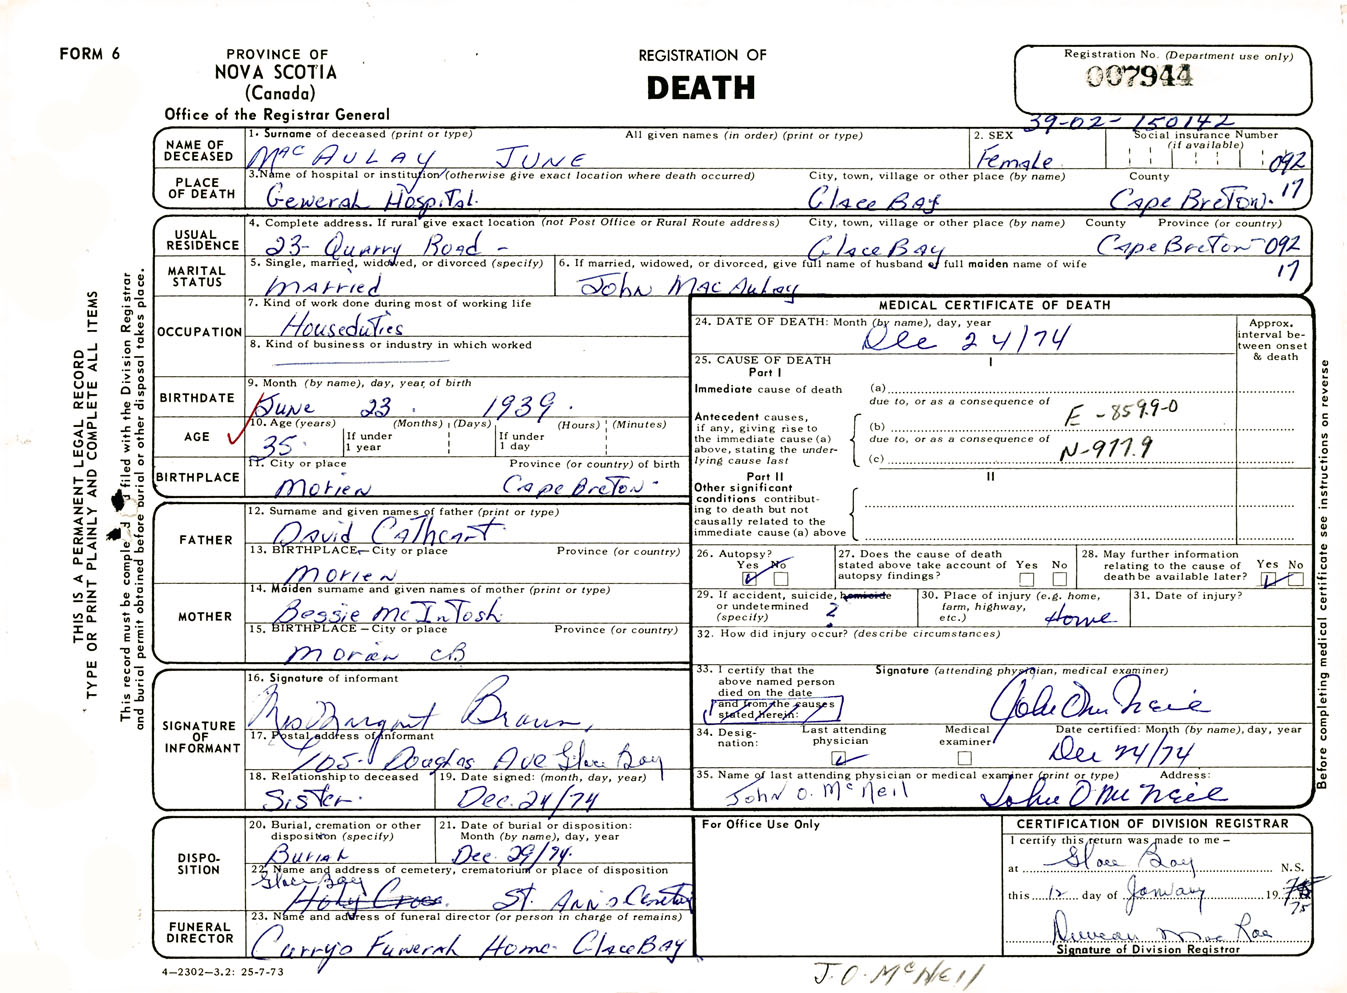 FORM 6
PROVINCE OF
NOVA SCOTIA
(Canada)
Office of the Registrar General
REGISTRATION OF
DEATH
Registration No. (Department use only)
007944
39-02-150142
NAME OF DECEASED
1. Surname of deceased (print or type) All given names (in order) (print or type)
MacAULAY JUNE
2. SEX
Female
Social insurance Number
(if available)
092
17
PLACE OF DEATH
3. Name of hospital or institution (otherwise give exact location where death occurred) City, town, village or other place (by name) County
General Hospital. Glace Bay Cape Breton.
USUAL RESIDENCE
4. Complete address. If rural give exact location (not Post Office or Rural Route address) City, town, village or other place (by name) County Province (or country)
23- Quarry Road - Glace Bay Cape Breton 092
17
MARITAL STATUS
5. Single, married, widowed, or divorced (specify)
Married
6. If married, widowed, or divorced, give full name of husband or full maiden name of wife
John MacAulay
OCCUPATION
7. Kind of work done during most of working life
Houseduties
8. Kind of business or industry in which worked
BIRTHDATE
9. Month (by name), day, year of birth
June 23. 1939.
AGE
10. Age (years) (Months) (Days) (Hours) (Minutes)
35 If under 1 year If under 1 day
BIRTHPLACE
11. City or place Province (or country) of birth
Morien Cape Breton
FATHER
12. Surname and given names of father (print or type)
David Cathcart
13. BIRTHPLACE - City or place Province (or country)
Morien
MOTHER
14. Maiden surname and given names of mother (print or type)
Bessie McIntosh
15. BIRTHPLACE - City or place Province (or country)
Morien CB
SIGNATURE OF INFORMANT
16. Signature of informant
Mrs Margaret
17. Postal address of informant
105- Douglas Ave Glace Bay
18. Relationship to deceased
Sister.
19. Date signed: (month, day, year)
Dec. 24/74
DISPO-SITION
20. Burial, cremation or other disposition (specify)
Burial
21. Date of burial or disposition:
Month (by name), day, year
Dec. 29/74.
22. Name and address of cemetery, crematorium or place of disposition
Glace Bay
Holy Cross. St. Ann's Cemetery
FUNERAL DIRECTOR
23. Name and address of funeral director (or person in charge of remains)
Curry's Funeral Home Glace Bay
4—2302—3.2: 25-7-73
MEDICAL CERTIFICATE OF DEATH
24. DATE OF DEATH: Month (by name), day, year
Dec 24/74
Approx. interval between onset & death
25. CAUSE OF DEATH
Part I
I
Immediate cause of death (a)
due to, or as a consequence of
E-859.9-0
Antecedent causes, if any, giving rise to the immediate cause (a) above, stating the underlying cause last
(b)
due to, or as a consequence of
N-977.9
(c)
Part II
II
Other significant conditions contributing to death but not causally related to the immediate cause (a) above
26. Autopsy?
Yes No
27. Does the cause of death stated above take account of autopsy findings?
Yes No
28. May further information relating to the cause of death be available later?
Yes No
29. If accident, suicide, homicide or undetermined (specify)
?
30. Place of injury (e.g. home, farm, highway, etc.)
Home
31. Date of injury?
32. How did injury occur? (describe circumstances)
33. I certify that the above named person died on the date and from the causes stated herein:
Signature (attending physician, medical examiner)
John O McNeil
34. Designation:
Last attending physician
Medical examiner
Date certified: Month (by name), day, year
Dec 24/74
35. Name of last attending physician or medical examiner (print or type) Address:
John O. McNeil John O McNeil
For Office Use Only
CERTIFICATION OF DIVISION REGISTRAR
I certify this return was made to me —
at Glace Bay N.S.
this 12 day of January 19 75
Duncan MacRae
Signature of Division Registrar
J. O. McNEIL
THIS IS A PERMANENT LEGAL RECORD
TYPE OR PRINT PLAINLY AND COMPLETE ALL ITEMS
This record must be completed and filed with the Division Registrar
and burial permit obtained before burial or other disposal takes place.
Before completing medical certificate see instructions on reverse